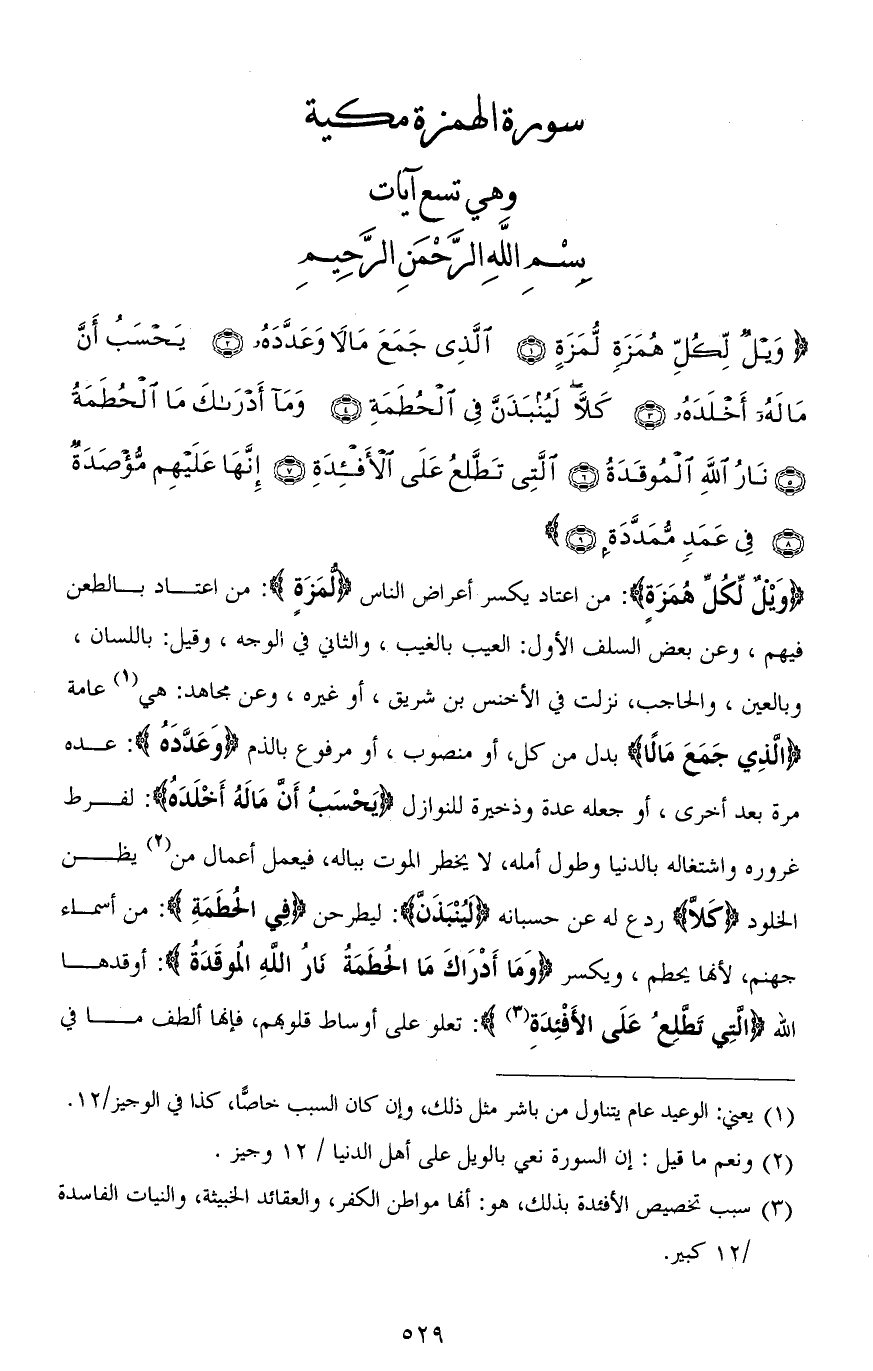 سورة الهمزة مكية
وهي تسع آيات
بِسْمِ اللَّهِ الرَّحْمَنِ الرَّحِيمِ
﴿ وَيْلٌ لِّكُلِّ هُمَزَةٍ لُّمَزَةٍ ١ ٱلَّذِى جَمَعَ مَالًا وَعَدَّدَهُۥ ٢ يَحْسَبُ أَنَّ
مَالَهُۥٓ أَخْلَدَهُۥ ٣ كَلَّا ۖ لَيُنۢبَذَنَّ فِى ٱلْحُطَمَةِ ٤ وَمَآ أَدْرَىٰكَ مَا ٱلْحُطَمَةُ
٥ نَارُ ٱللَّهِ ٱلْمُوقَدَةُ ٦ ٱلَّتِى تَطَّلِعُ عَلَى ٱلْأَفْـِٔدَةِ ٧ إِنَّهَا عَلَيْهِم مُّؤْصَدَةٌ
٨ فِى عَمَدٍ مُّمَدَّدَةٍۭ ٩ ﴾
﴿وَيْلٌ لِّكُلِّ هُمَزَةٍ﴾: من اعتاد يكسر أعراض الناس ﴿لُّمَزَةٍ ﴾: من اعتـــاد بـــالطعن
فيهم ، وعن بعض السلف الأول: العيب بالغيب ، والثاني في الوجه ، وقيل: باللسان ،
وبالعين ، والحاجب، نزلت في الأخنس بن شريق ، أو غيره ، وعن مجاهد: هي(١) عامة
﴿الَّذِي جَمَعَ مَالًا﴾ بدل من كل، أو منصوب ، أو مرفوع بالذم ﴿وَعَدَّدَهُ ﴾: عـــده
مرة بعد أخرى ، أو جعله عدة وذخيرة للنوازل ﴿يَحْسَبُ أَنَّ مَالَهُ أَخْلَدَهُ﴾: لفـرط
غروره واشتغاله بالدنيا وطول أمله، لا يخطر الموت بباله، فيعمل أعمال من(٢) يظـــن
الخلود ﴿كَلاَّ﴾ ردع له عن حسبانه ﴿لَيُنْبَذَنَّ﴾: ليطرحن ﴿فِي الْحُطَمَةِ ﴾: من أسمـاء
جهنم، لأنها يحطم ، ويكسر ﴿وَمَا أَدْرَاكَ مَا الْحُطَمَةُ نَارُ اللَّهِ الْمُوقَدَةُ ﴾: أوقدهـــا
الله ﴿الَّتِي تَطَّلِعُ عَلَى الأَفْئِدَةِ(٣) ﴾: تعلو على أوساط قلوبهم، فإنها ألطف مـــا في
(١) يعني: الوعيد عام يتناول من باشر مثل ذلك، وإن كان السبب خاصًّا، كذا في الوجيز/١٢.
(٢) ونعم ما قيل : إن السورة نعي بالويل على أهل الدنيا / ١٢ وجيز .
(٣) سبب تخصيص الأفئدة بذلك، هو: أنها مواطن الكفر، والعقائد الخبيثة، والنيات الفاسدة
/١٢ كبير.
٥٢٩